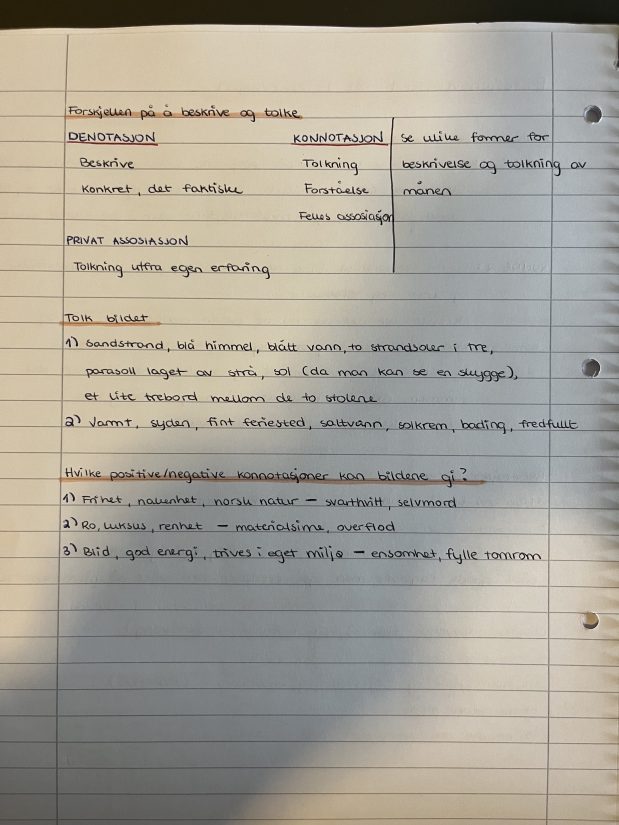 Forskjellen på å beskrive og tolke
DENOTASJON KONNOTASJON se ulike former for
Beskrive Tolkning beskrivelse og tolkning av
Konkret, det faktiske Forståelse månen
Felles assosiasjon
PRIVAT ASSOSIASJON
Tolkning utfra egen erfaring
Tolk bildet
1) Sandstrand, blå himmel, blått vann, to strandsoler i tre,
parasoll laget av strå, sol (da man kan se en skygge),
et lite trebord mellom de to stolene
2) Varmt, syden, fint feriested, saltvann, solkrem, bading, fredfullt
Hvilke positive/negative konnotasjoner kan bildene gi?
1) Frihet, nakenhet, norsk natur – svarthvitt, selvmord
2) Ro, luksus, renhet – materialsime, overflod
3) Blid, god energi, trives i eget miljø – ensomhet, fylle tomrom